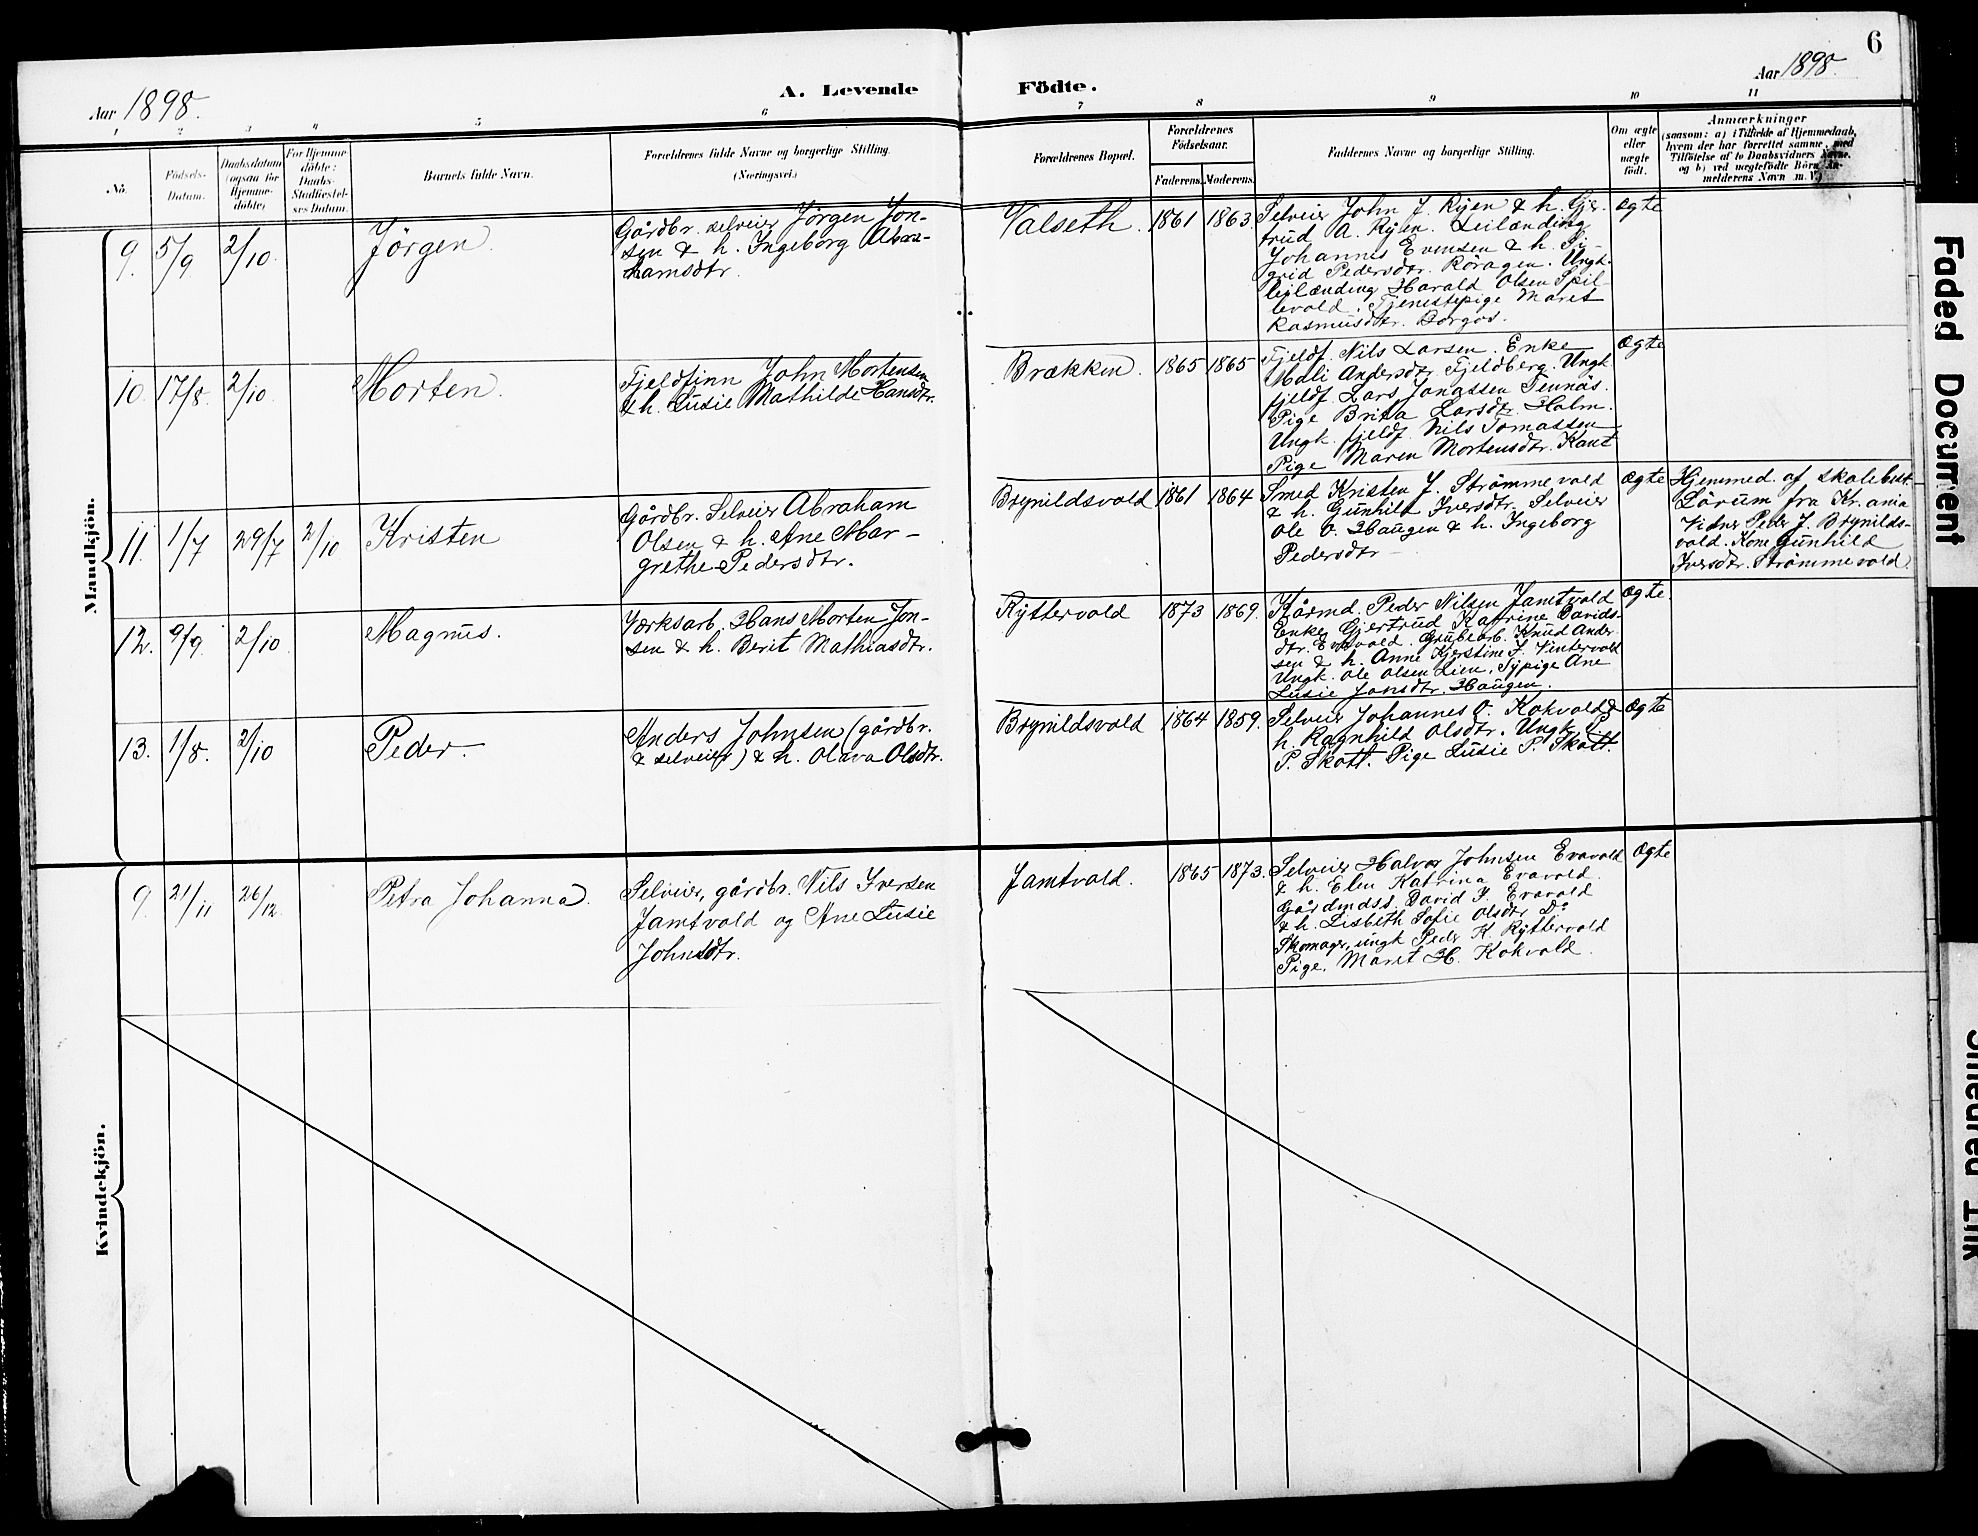 6
Aar 1898.
A. Levende
Födte.
Aar 1898.
1 2 3 4 5 6 7 8 9 10 11
No.
Födsels-
Datum.
Daabsdatum
(ogsaa for
Hjemme-
döbte)
For Hjemme
döbte:
Daabs-
Stadfæstel-
ses Datum.
Barnets fulde Navn.
Forældrenes fulde Navne og borgerlige Stilling.
(Næringsvei.)
Forældrenes Bopæl.
Forældrenes
Födselsaar.
Faderens. Moderens.
Faddernes Navne og borgerlige Stilling.
Om ægte
eller
uægte
födt.
Anmærkninger
(saasom: a) i Tilfælde af Hjemmedaab,
hvem der har forrettet samme, med
Tilföielse af to Daabsvidners Navne,
og b) ved uægtefödte Börn An-
melderens Navn m. V.)
Mandkjön.
9. 5/9 2/10. Jörgen.
Gårdbr. selveier Jörgen Jon-
sen & h. Ingeborg Abra-
hamsdtr.
Valseth. 1861 1863.
Selveier John J. Ryen & h. Gjer-
trud A. Ryen. Leilænding
Johannes Evensen & h. Si-
grid Pedersdtr. Röragen. Ungk.
leilænding Harald Olsen Spil-
levold. Tjenestepige Maret
Rasmusdtr. Borgos.
Ægte
10. 17/8. 2/10. Morten.
Fjeldfinn John Mortensen
& h. Lusie Mathilde Hansdtr.
Brækken. 1865 1865
Fjeldf. Nils Larsen. Enke
Mali Andersdtr Fjeldberg. Ungk.
fjeldf. Lars Jonassen Tennäs.
Pige Brita Larsdtr. Holm.
Ungk. fjeldf. Nils Tomassen
Pige Maren Mortensdtr. Kant
Ægte
11. 1/7 29/7 2/10 Kristen
Gårdbr. Selveier Abraham
Olsen & h. Ane Mar-
grethe Pedersdtr.
Brynildsvold 1861 1864
Smed Kristen J. Strømmevold
& h. Gunhild Iversdtr. Selveier
Ole O. Haugen & h. Ingeborg
Pedersdtr
Ægte
Hjemmed. af skolebest.
Lörum fra Kr.ania
Vidner Peder J. Brynilds-
vold. Kone Gunhild
Iversdtr. Strømmevold.
12. 9/9. 2/10 Magnus.
Værksarb. Hans Morten Jon-
sen & h. Berit Mathiasdtr.
Ryttervold 1873 1869.
Kårmd. Peder Nilsen Jamtvold
Enke Gjertrud Katrine Davids-
dtr. Evavold. Grubearb. Knud Ander-
sen & h. Anne Kjerstine J. Vintervold
Ungk. Ole Olsen Lien. Sypige Ane
Lusie Jonsdtr. Haugen.
Ægte.
13. 1/8. 2/10 Peder.
Anders Johnsen (gårdbr.
& selveier) & h. Olava Olsdtr.
Brynildsvold 1864 1859.
Selveier Johannes O. Kokvold &
h. Ragnhild Olsdtr. Ungk. P.
P. Skott. Pige Lusie P. Skott.
Ægte
Kvindekjön.
9. 21/11 26/12. Petra Johanna.
Selveier, gårdbr. Nils Iversen
Jamtvold og Ane Lusie
Johnsdtr.
Jamtvold. 1865 1873.
Selveier Halvor Johnsen Evavold
& h. Elen Katrina Evavold.
Gårdmdss. David J. Evavold
& h. Lisbeth Sofie Olsdtr. Do
Skomager, ungk Peder K. Ryttervold
Pige. Maret H. Kokvold.
Ægte
Faded Document
Smeared Ink